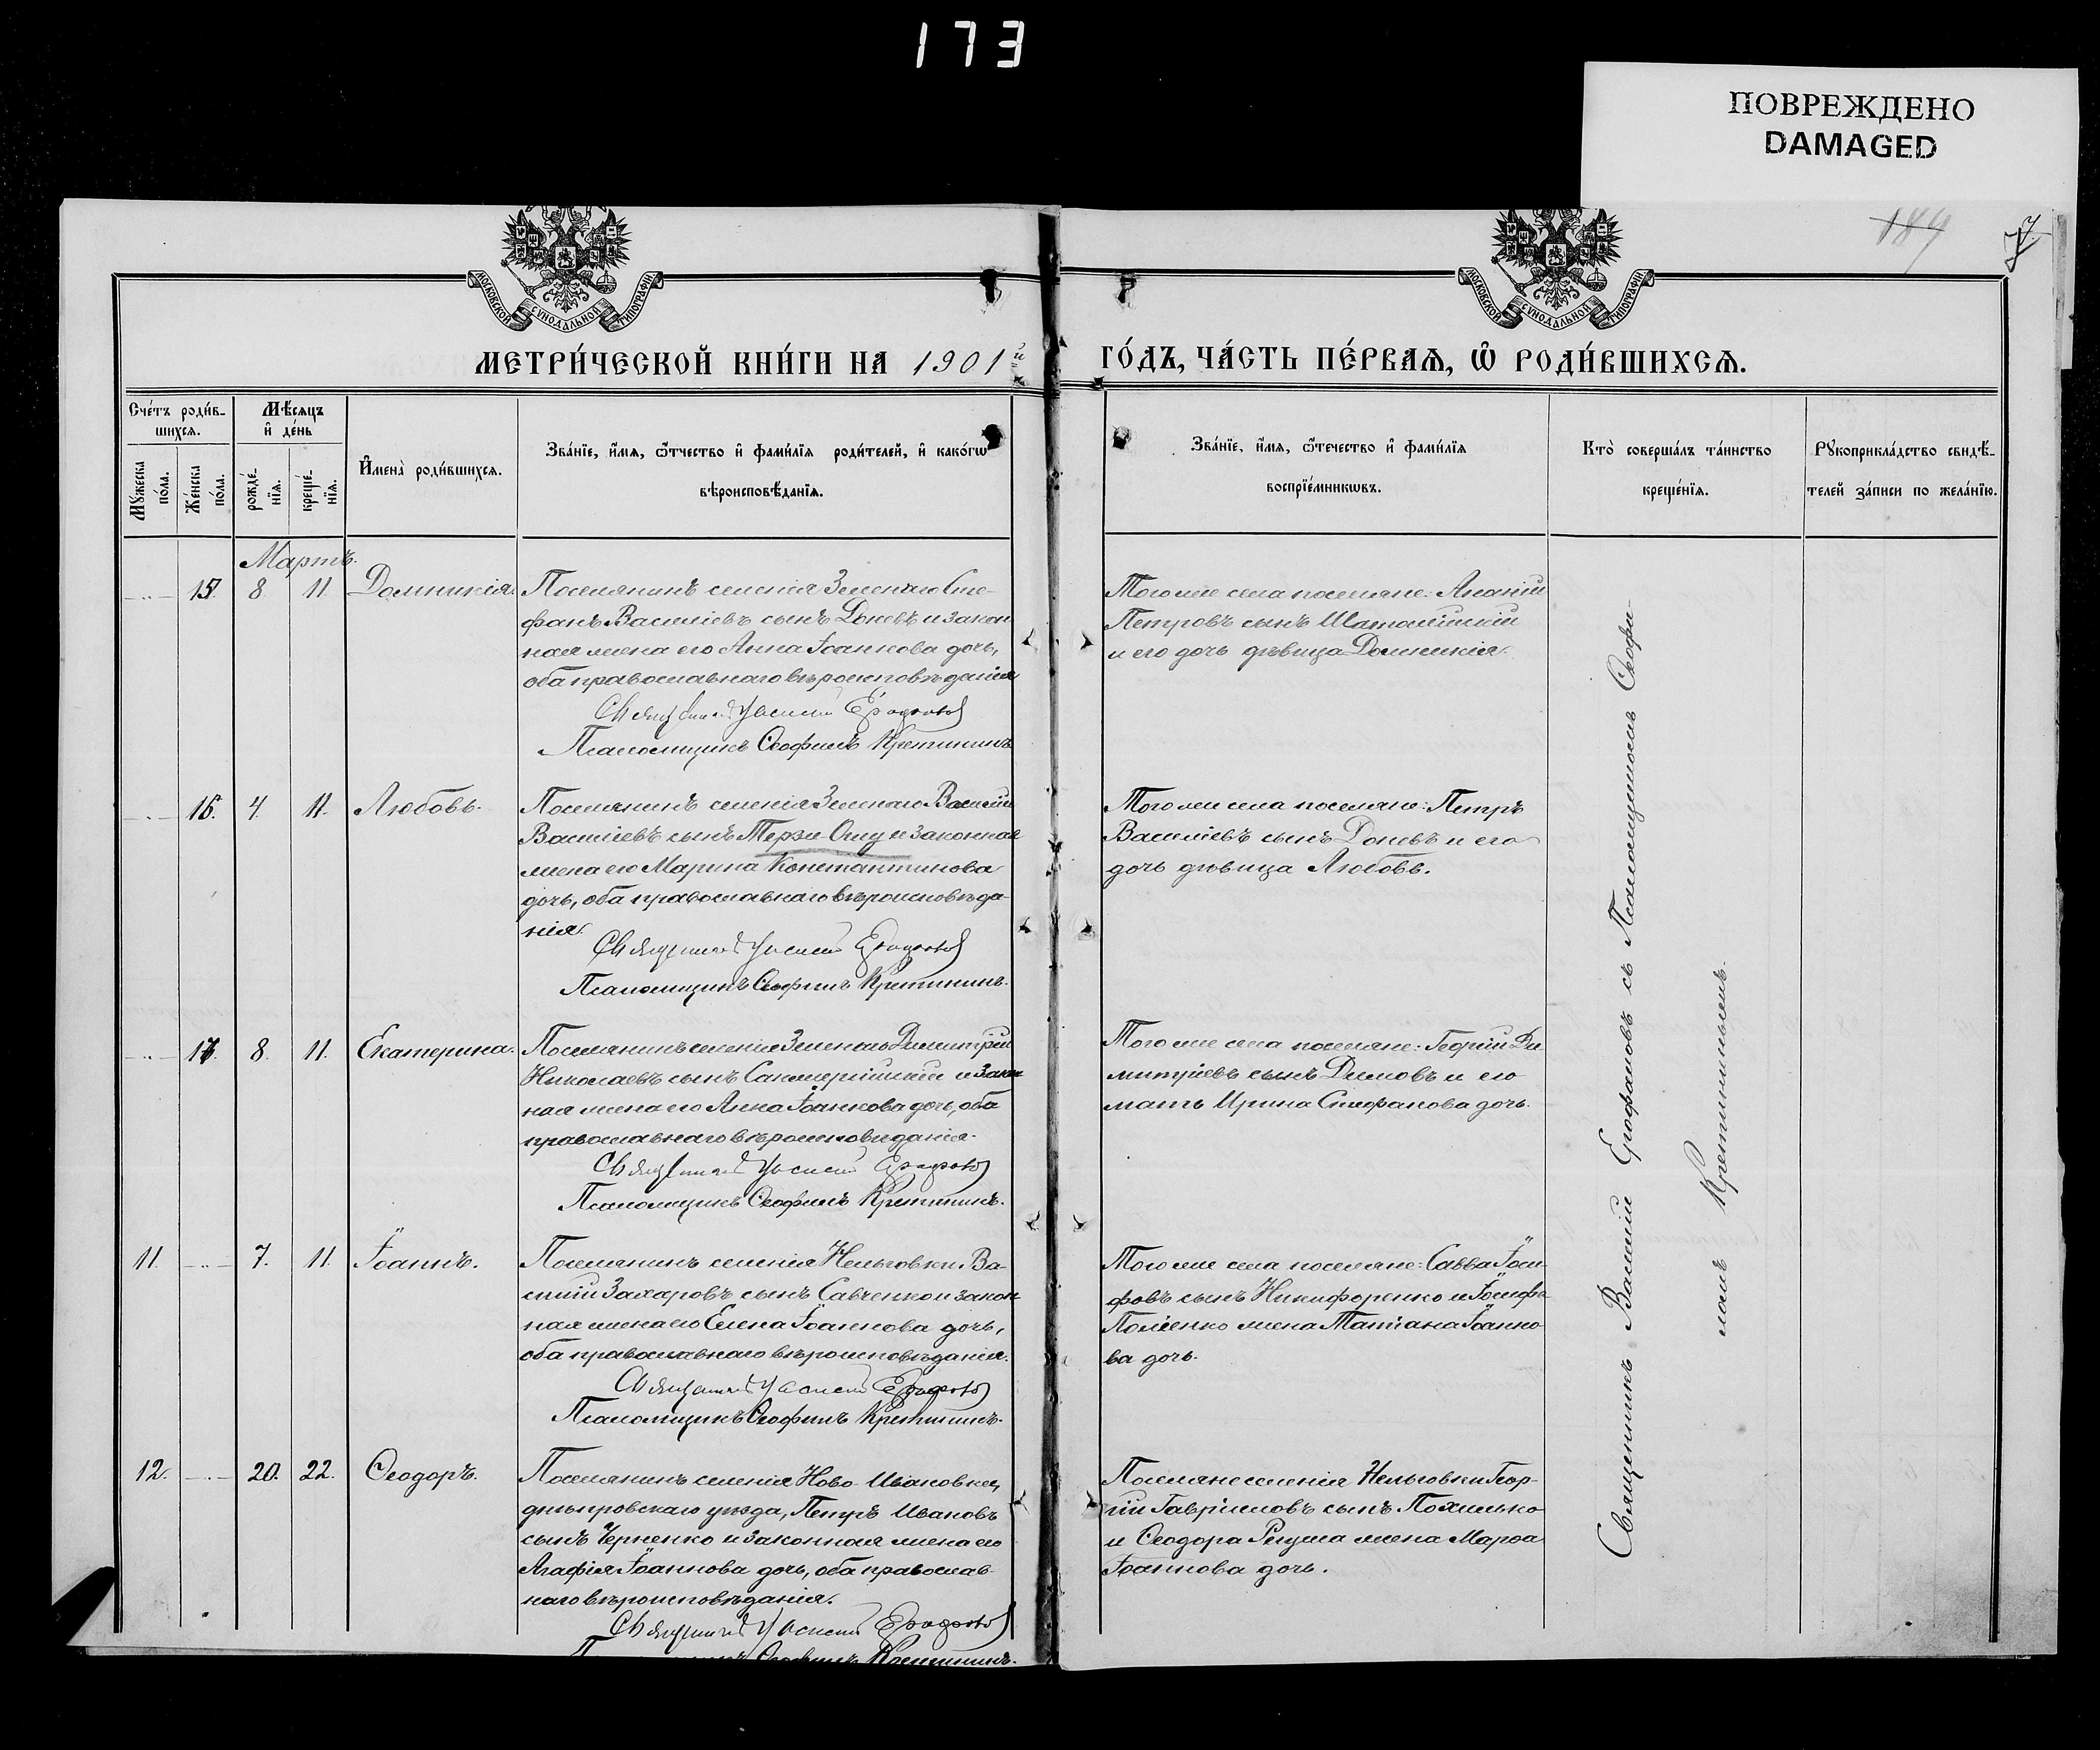 173
ПОВРЕЖДЕНО
DAMAGED
189
МОСКОВСКОЙ СѴНОДАЛЬНОЙ ТИПОГРАФІИ
МОСКОВСКОЙ СѴНОДАЛЬНОЙ ТИПОГРАФІИ
МЕТРИ́ЧЕСКОЙ КНИ́ГИ НА 1901й ГО́ДЪ, ЧА́СТЬ ПЕ́РВАѦ, Ѡ РОДИ́ВШИХСѦ.
Счéтъ роди́в-
шихсѧ.
Мꙋ́жеска
по́ла.
Же́нска
по́ла.
Мѣ́сѧцъ
и҆ де́нь
рожде́-
нїѧ.
креще́-
нїѧ.
И҆мена̀ роди́вшихсѧ.
Зва́нїе, и҆́мѧ, ѻ҆́тчество и҆ фами́лїѧ роди́телей, и҆ како́гѡ
вѣроисповѣ́данїѧ.
Зва́нїе, и҆́мѧ, ѻ҆́течество и҆ фами́лїѧ
воспрїе́мникѡвъ.
Кто̀ соверша́лъ та́инство
креще́нїѧ.
Рꙋкоприкла́дство свидѣ́-
телей за́писи по жела́нїю.
Мартъ.
15. 8. 11. Домникія.
Поселянинъ селенія Зеленаго Сте-
фанъ Василіевъ сынъ Доневъ и закон
ная жена его Анна Іоаннова дочь,
оба православнаго вѣроисповѣданія
Священникъ Василий Ерофановъ
Псаломщикъ Ѳеофилъ Кретининъ
Того же села поселяне: Ананій
Петровъ сынъ
и его дочь дѣвица Домникія.
16. 4. 11. Любовь.
Поселянинъ селенія Зеленаго Василій
Василіевъ сынъ Терзи-Оглу и законная
жена его Марина Константинова
дочь, оба православнаго вѣроисповѣда-
нія.
Священникъ Василий Ерофановъ
Псаломщикъ Ѳеофилъ Кретининъ.
Того же села поселяне: Петръ
Василіевъ сынъ Доневъ и его
дочь дѣвица Любовь.
17. 8. 11. Екатерина.
Поселянинъ селенія Зеленаго Димитрій
Николаевъ сынъ и закон
ная жена его Анна Іоаннова дочь, оба
православнаго вѣроисповѣданія.
Священникъ Василий Ерофановъ
Псаломщикъ Ѳеофилъ Кретининъ.
Того же села поселяне: Георгій Ди
митріевъ сынъ Димовъ и его
мать Ирина Стефанова дочь.
11. 7. 11. Іоаннъ.
Поселянинъ селенія Нельговки Ва-
силій Захаровъ сынъ Савченко и закон
ная жена его Елена Іоаннова дочь,
оба православнаго вѣроисповѣданія.
Священникъ Василий Ерофановъ
Псаломщикъ Ѳеофилъ Кретининъ.
Того же села поселяне: Савва Іоси-
фовъ сынъ Никифоренко и Іосифа
жена Татіана Іоанно-
ва дочь.
12. 20. 22. Ѳеодоръ.
Поселянинъ селенія Ново-Ивановки,
днѣпровскаго уѣзда, Петръ Ивановъ
сынъ Черненко и законная жена его
Агафія Іоаннова дочь, оба православ-
наго вѣроисповѣданія.
Священникъ Василий Ерофановъ
Псаломщикъ Ѳеофилъ Кретининъ.
Поселяне селенія Нельговки Геор-
гій Гавріиловъ сынъ Похилько
и Ѳеодора жена Марѳа
Іоаннова дочь.
Священникъ Василій Ерофановъ съ Псаломщикомъ Ѳеофи-
ломъ Кретининымъ.